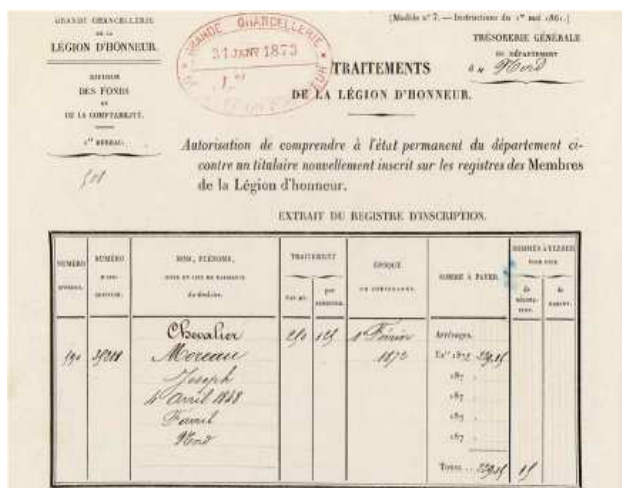 GRANDE CHANCELLERIE
DE LA
LÉGION D'HONNEUR.
DIVISION
DES FONDS
ET
DE LA COMPTABILITÉ.
1er BUREAU.
GRANDE CHANCELLERIE
31 JANV 1873
[Modèle n° 7. — Instructions du 1er mai 1861.]
TRÉSORERIE GÉNÉRALE
DU DÉPARTEMENT
du Nord
TRAITEMENTS
DE LA LÉGION D'HONNEUR.
Autorisation de comprendre à l'état permanent du département ci-
contre un titulaire nouvellement inscrit sur les registres des Membres
de la Légion d'honneur.
EXTRAIT DU REGISTRE D'INSCRIPTION.
NUMÉRO
NUMÉRO
NOM, PRÉNOMS,
DATE ET LIEU DE NAISSANCE
du titulaire.
TRAITEMENT
par an.
par
SEMESTRE.
ÉPOQUE
DE JOUISSANCE.
SOMME À PAYER.
SOMMES À VERSER
POUR PRIX
de
de
BREVET.
Chevalier
250 125 1er Février
1872
Arrérages.
Moreau
Joseph
4 avril 1848
Favril
Nord
Ex** 1872
187
187
187
187
Total